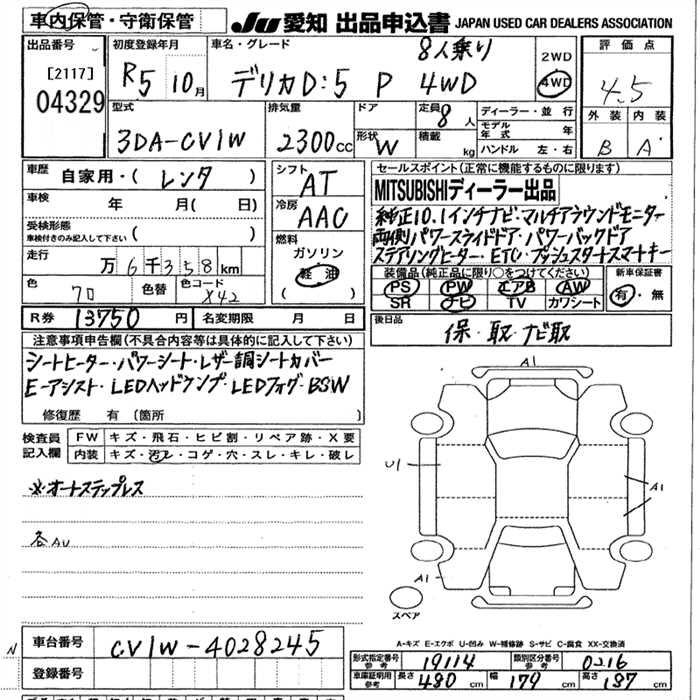 車内保管・守衛保管
JU 愛知 出品申込書 JAPAN USED CAR DEALERS ASSOCIATION
出品番号
[2117]
04329
初度登録年月
R5 10月
車名・グレード
8人乗り
デリカD:5 P 4WD
2WD
4WD
評価点
4.5
型式
3DA-CV1W
排気量
2300cc
ドア
形状 W
定員 8人
積載 kg
ディーラー・並行
モデル年式 年
ハンドル 左・右
外装 内装
B A
車歴 自家用・( レンタ )
車検 年 月( 日)
受検形態
車検付きのみ記入して下さい ( )
走行 万6千358km
色 70 色替 色コード X42
R券 13750円 名変期限 月 日
シフト AT
冷房 AAC
燃料
ガソリン
軽油
( )
セールスポイント(正常に機能するものに限ります)
MITSUBISHIディーラー出品
純正10.1インチナビ・マルチアラウンドモニター
両側パワースライドドア・パワーバックドア
ステアリングヒーター・ETC・プッシュスタートスマートキー
装備品(純正品に限り○をつけてください)
PS PW エアB AW
SR ナビ TV カワシート
新車保証書
有・無
後日品
保・取・ナビ取
注意事項申告欄(不具合内容等は具体的に記入して下さい)
シートヒーター・パワーシート・レザー調シートカバー
E-アシスト・LEDヘッドランプ・LEDフォグ・BSW
修復歴 有 〔箇所
検査員記入欄
FW キズ・飛石・ヒビ割・リペア跡・X要
内装 キズ・汚レ・コゲ・穴・スレ・キレ・破レ
※オートステップレス
各AU
A1
U1
A1
A1
スペア
A-キズ E-エクボ U-凹み W-補修跡 S-サビ C-腐食 XX-交換済
N
車台番号 CV1W-4028245
登録番号
形式指定番号参考 19114 類別区分番号参考 0216
車庫証明用参考 長さ 480cm 幅 179cm 高さ 187cm